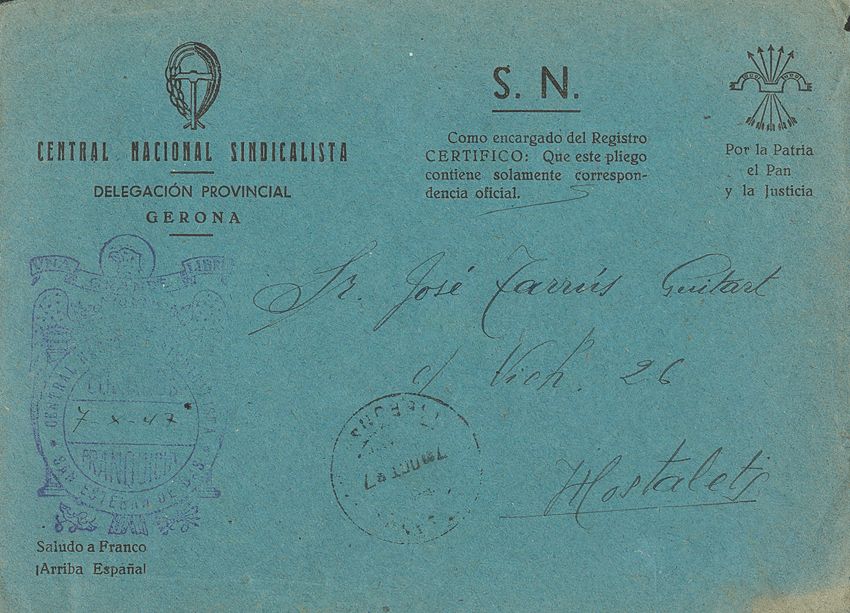 CENTRAL NACIONAL SINDICALISTA
DELEGACIÓN PROVINCIAL
GERONA
S. N.
Como encargado del Registro
CERTIFICO: Que este pliego
contiene solamente correspon-
dencia oficial.
Por la Patria
el Pan
y la Justicia
Sr. José Tarrús Guitart
c/ Vich. 26
Hostalets
UNA LIBRE
CENTRAL
CORREOS
7 X-47
FRANQUICIA
SAN ESTEBAN DE
7 OCT 47
Saludo a Franco
¡Arriba España!